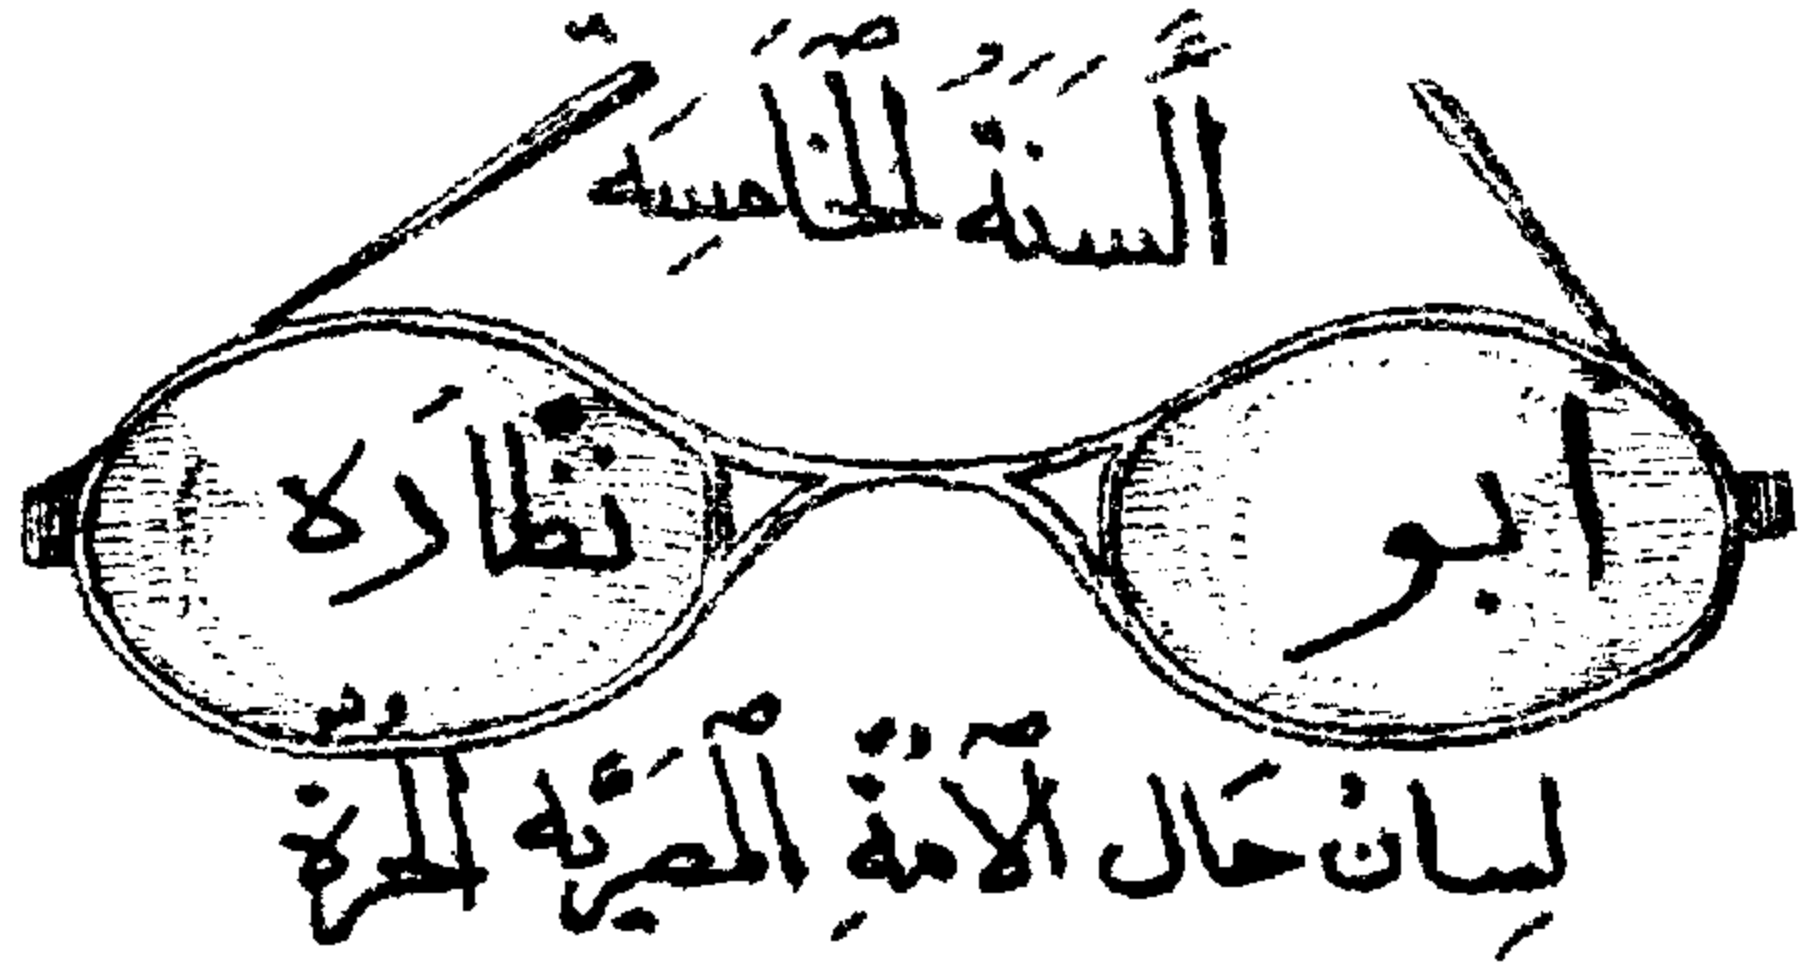 السَّنَةُ الخَامِسَه
ابو نظارَه
لِسانْ حَال الأمةِ المصَرِيَّه الحرة